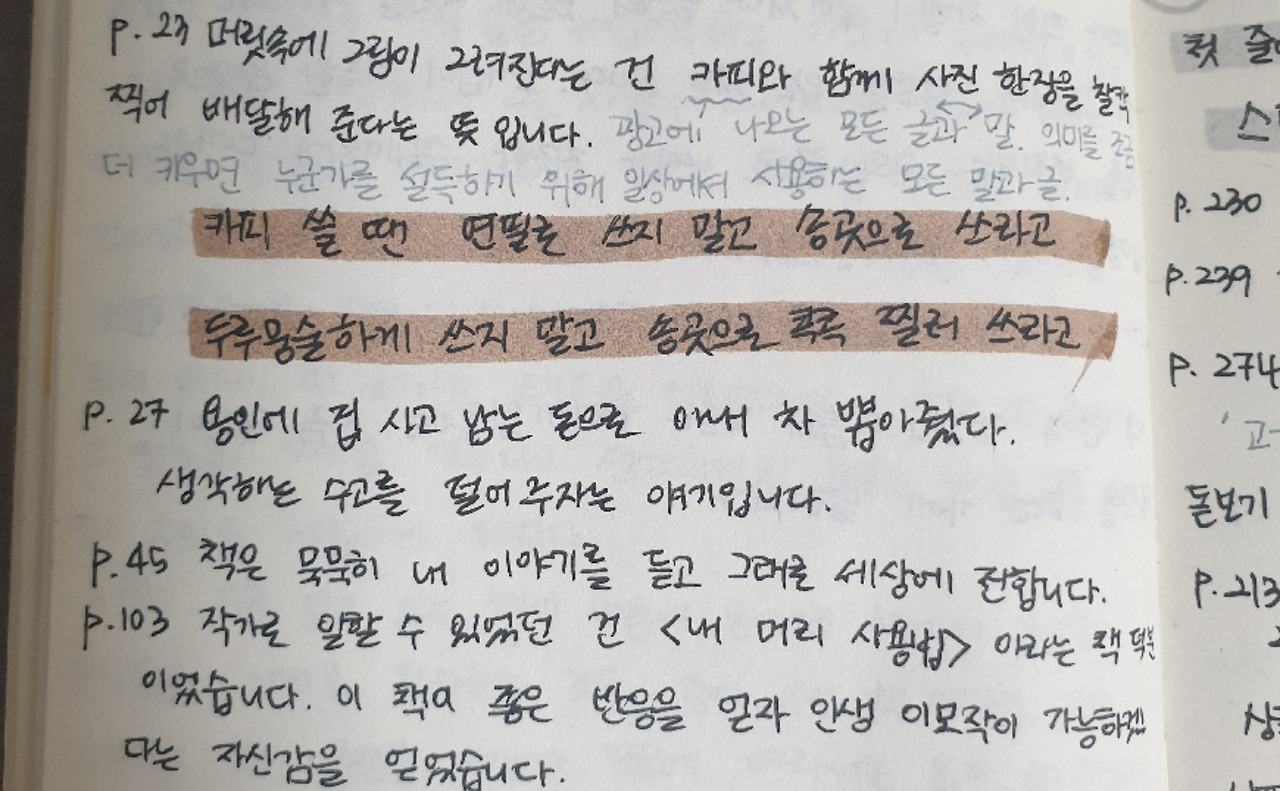 p. 23 머릿속에 그림이 그려진다는 건 카피와 함께 사진 한장을 찰칵
찍어 배달해 준다는 뜻 입니다. 광고에 나오는 모든 글과 말. 의미를 조금
더 키우면 누군가를 설득하기 위해 일상에서 사용하는 모든 말과 글.
카피 쓸 땐 연필로 쓰지 말고 송곳으로 쓰라고
두루뭉술하게 쓰지 말고 송곳으로 콕콕 찔러 쓰라고
p. 27 용인에 집 사고 남는 돈으로 아내 차 뽑아줬다.
생각하는 수고를 덜어 주자는 얘기입니다.
p.45 책은 묵묵히 내 이야기를 듣고 그대로 세상에 전합니다.
p.103 작가로 일할 수 있었던 건 <내 머리 사용법> 이라는 책 덕분
이었습니다. 이 책이 좋은 반응을 얻자 인생 이모작이 가능하겠
다는 자신감을 얻었습니다.
첫
p. 230
p.239
p. 274
돋보기
p.213